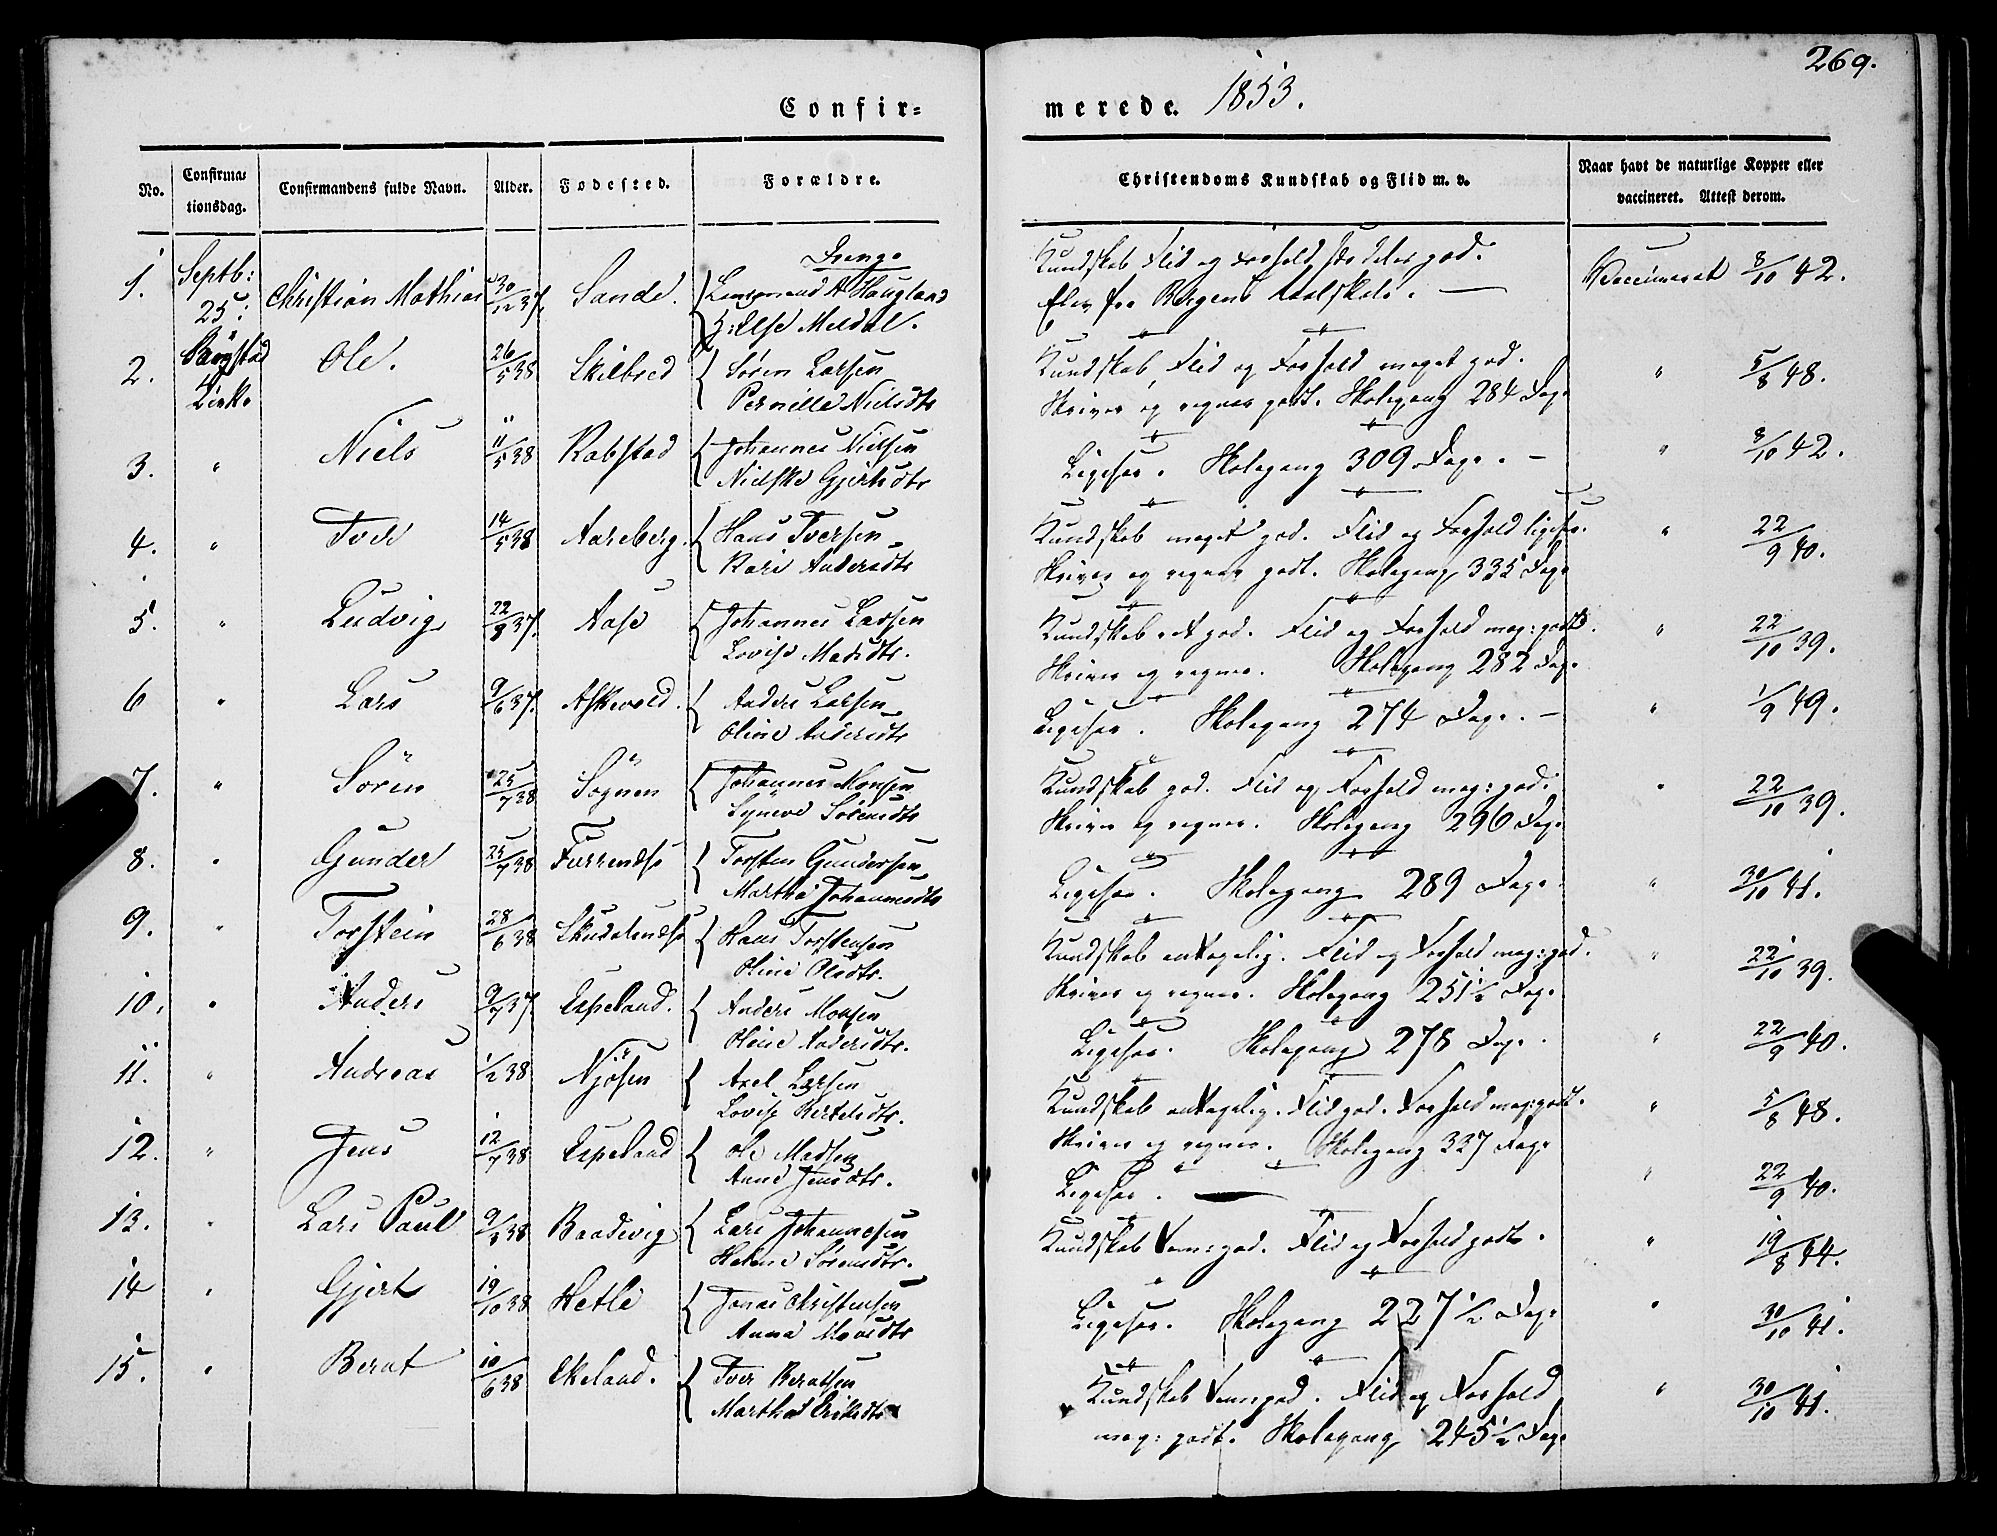 269.
Confir= merede. 1853.
No. Confirmationsdag. Confirmandens fulde Navn. Alder. Fødested. Forældre. Christendoms Kundskab og Flid m. v. Naar havt de naturlige Kopper eller vaccineret. Attest derom.
Drenge
1. Septb: 25: Christian Mathias 30/12 37. Sande. Lensmand A Haugland
H: Else Meldal.
Kundskab Flid og Forhold særdeles god.
Elev fra Bergens Realskole. —
Vaccineret 8/10 42.
2. Vaagstad Kirke Ole. 26/5 38 Skilbred Sören Larsen
Pernille Nielsdtr
Kundskab, Flid og Forhold meget god.
Skriver og regner godt. Skolegang 284 Dage
" 5/8 48.
3. " Niels 11/5 38 Rabstad Johannes Nielsen
Nielske Gjertsdtr
Ligesaa. Skolegang 309 Dage. —
" 8/10 42.
4. " Iver 14/5 38 Aareberg. Hans Iversen
Kari Andersdtr
Kundskab meget god. Flid og Forhold ligesaa.
Skriver og regner godt. Skolegang 335 Dage
" 22/9 40.
5. " Ludvig 22/9 37. Aase Johannes Larsen
Lovise Madsdtr.
Kundskab ret god. Flid og Forhold meg: godt.
Skriver og regner. Skolegang 282 Dage
" 22/10 39.
6 " Lars 9/6 37. Askevold. Anders Larsen
Oline Andersdtr
Ligesaa. Skolegang 274 Dage. —
" 1/9 49.
7. " Sören 25/7 38 Sögnen Johannes Monsen
Synneve Sörensdtr
Kundskab god. Flid og Forhold meg: god.
Skriver og regner. Skolegang 296 Dage
" 22/10 39.
8. " Gunder 25/7 38 Furrenæse Torsten Gundersen
Marthe Johannesdtr
Ligesaa. Skolegang 289 Dage.
" 30/10 41.
9. " Torstein 28/6 38 Skudalnæse Hans Torstensen
Oline Olsdtr.
Kundskab antagelig. Flid og Forhold meg: god.
Skriver og regner. Skolegang 251 1/2 Dage
" 22/10 39.
10. " Anders 9/7 37. Espeland. Anders Monsen
Oline Andersdtr.
Ligesaa. Skolegang 278 Dage.
" 22/9 40.
11. " Andreas 1/2 38 Njösen Axel Larsen
Lovise Bertelsdtr.
Kundskab antagelig. Flid god. Forhold meg: godt.
Skriver og regner. Skolegang 337 Dage
" 5/8 48.
12. " Jens 12/7 38 Espeland Ole Madsen
Anne Jensdtr.
Ligesaa. —
" 22/9 40.
13. " Lars Paul 9/3 38 Baadevig Lars Johannesen
Helene Sörensdtr.
Kundskab temgod. Flid og Forhold godt.
" 19/8 44.
14 " Gjert 19/10 38 Hetle Jonas Christensen
Anna Monsdtr
Ligesaa. Skolegang 227 1/2 Dage
" 30/10 41.
15. " Berent 10/6 38 Ekeland. Iver Berentsen
Martha Eriksdtr
Kundskab temgod. Flid og Forhold
meg: godt. Skolegang 245 1/2 Dage
" 30/10 41.